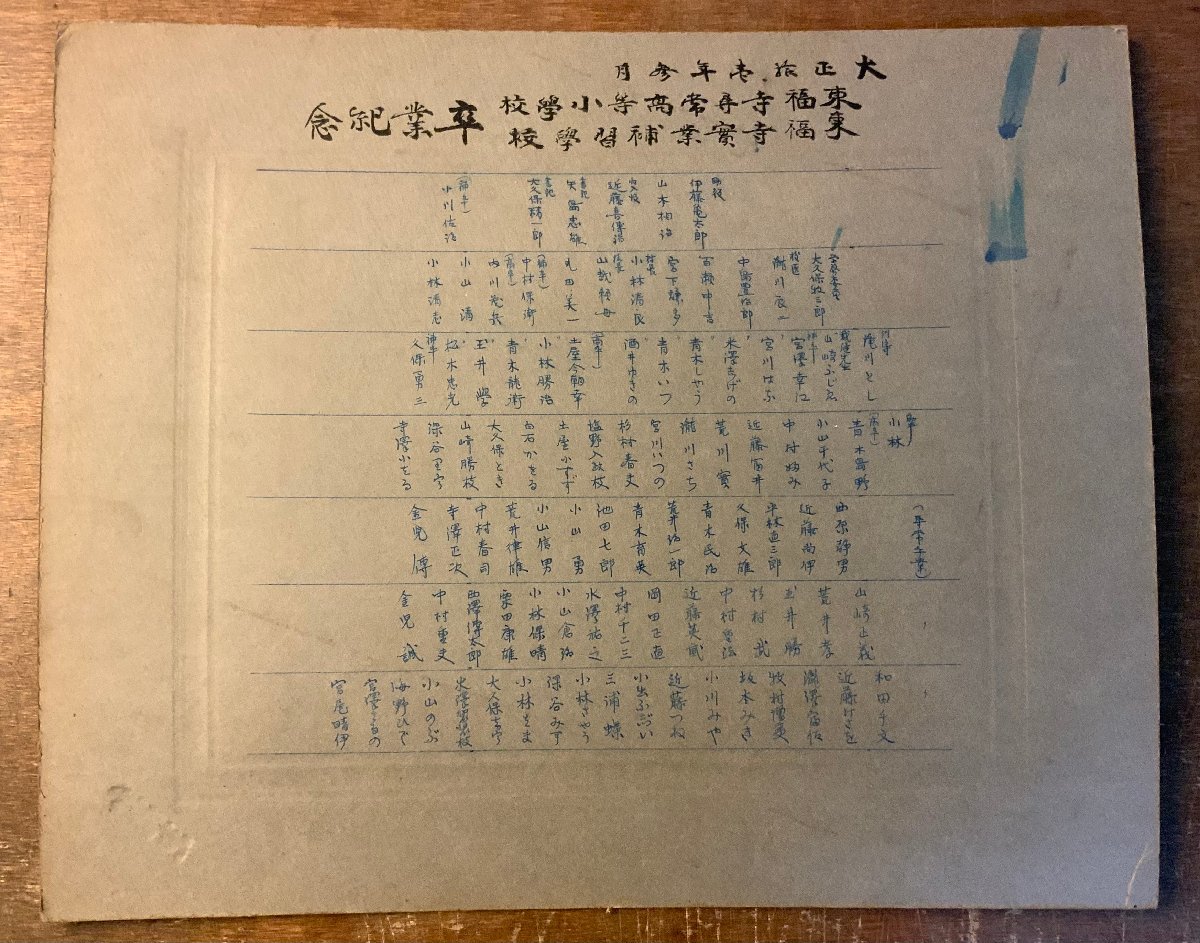 大正拾壱年参月
東福寺尋常高等小學校
東福寺實業補習學校
卒業紀念
伊藤亀太郎
山本柏治
近藤喜傳治
大久保精一郎
(補卆)
小川佐治
學務委員
大久保牧三郎
校医
瀧川辰二
百瀬申吉
宮下謙多
村長
小林清民
丸田美一
(補卆)
中村保衛
小山満
小林清志
瀧川とし
山崎ふじゑ
宮澤幸江
宮川はな
水澤志げの
青木しやう
青木いつ
酒井ゆきの
土屋今朝幸
小林勝治
青木龍衛
玉井學
松木忠光
久保勇三
小林
(高卆)
青木喜野
小山千代子
中村ふみ
近藤冨井
荒川實
瀧川さち
宮川いつの
杉村春吏
塩野入政枝
土屋小すず
白石かをる
大久保とき
山崎勝枝
深谷里う
寺澤小はる
(尋常卆業)
西原静男
近藤尚伊
平林直三郎
久保文雄
青木民治
荒井治一郎
青木育英
池田七郎
小山勇
小山信男
荒井律雄
中村春司
寺澤正次
金児傳
山崎正義
荒井孝
玉井勝
杉村武
中村重法
近藤英風
岡田正直
中村千二三
水澤祐之
小山倉治
小林保晴
栗田康雄
西澤傳太郎
中村重夫
金児誠
和田千文
近藤けさを
瀧澤富佐
牧村澄美
坂本みさき
小川みや
近藤つね
小出ふじい
三浦蝶
小林きやう
深谷みす
小林はま
大久保志う
小山のぶ
海野ひで
宮尾晴伊